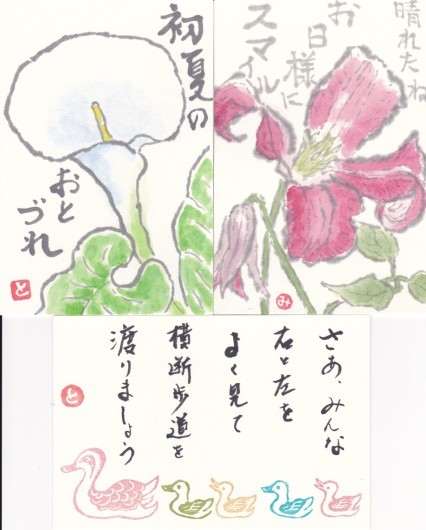 初夏の
おとづれ
と
晴れたね
お日様に
スマイル
み
さあ、みんな
右と左を
よく見て
横断歩道を
渡りましょう
と